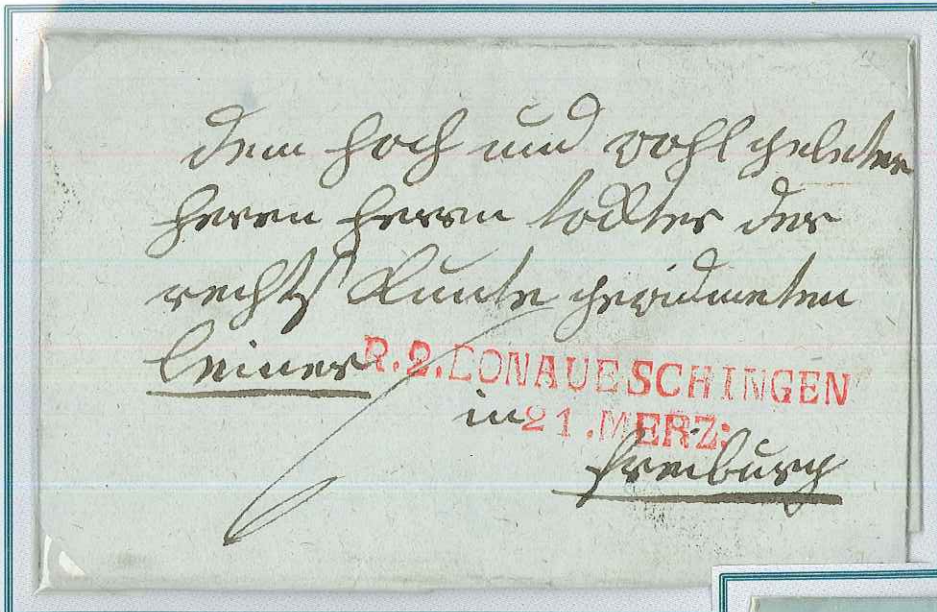 dem hoch und wohl gelehrten
herrn herrn doctor der
rechts gewidmeten
Leiner
R.2.DONAUESCHINGEN
in
21.MERZ:
freiburg